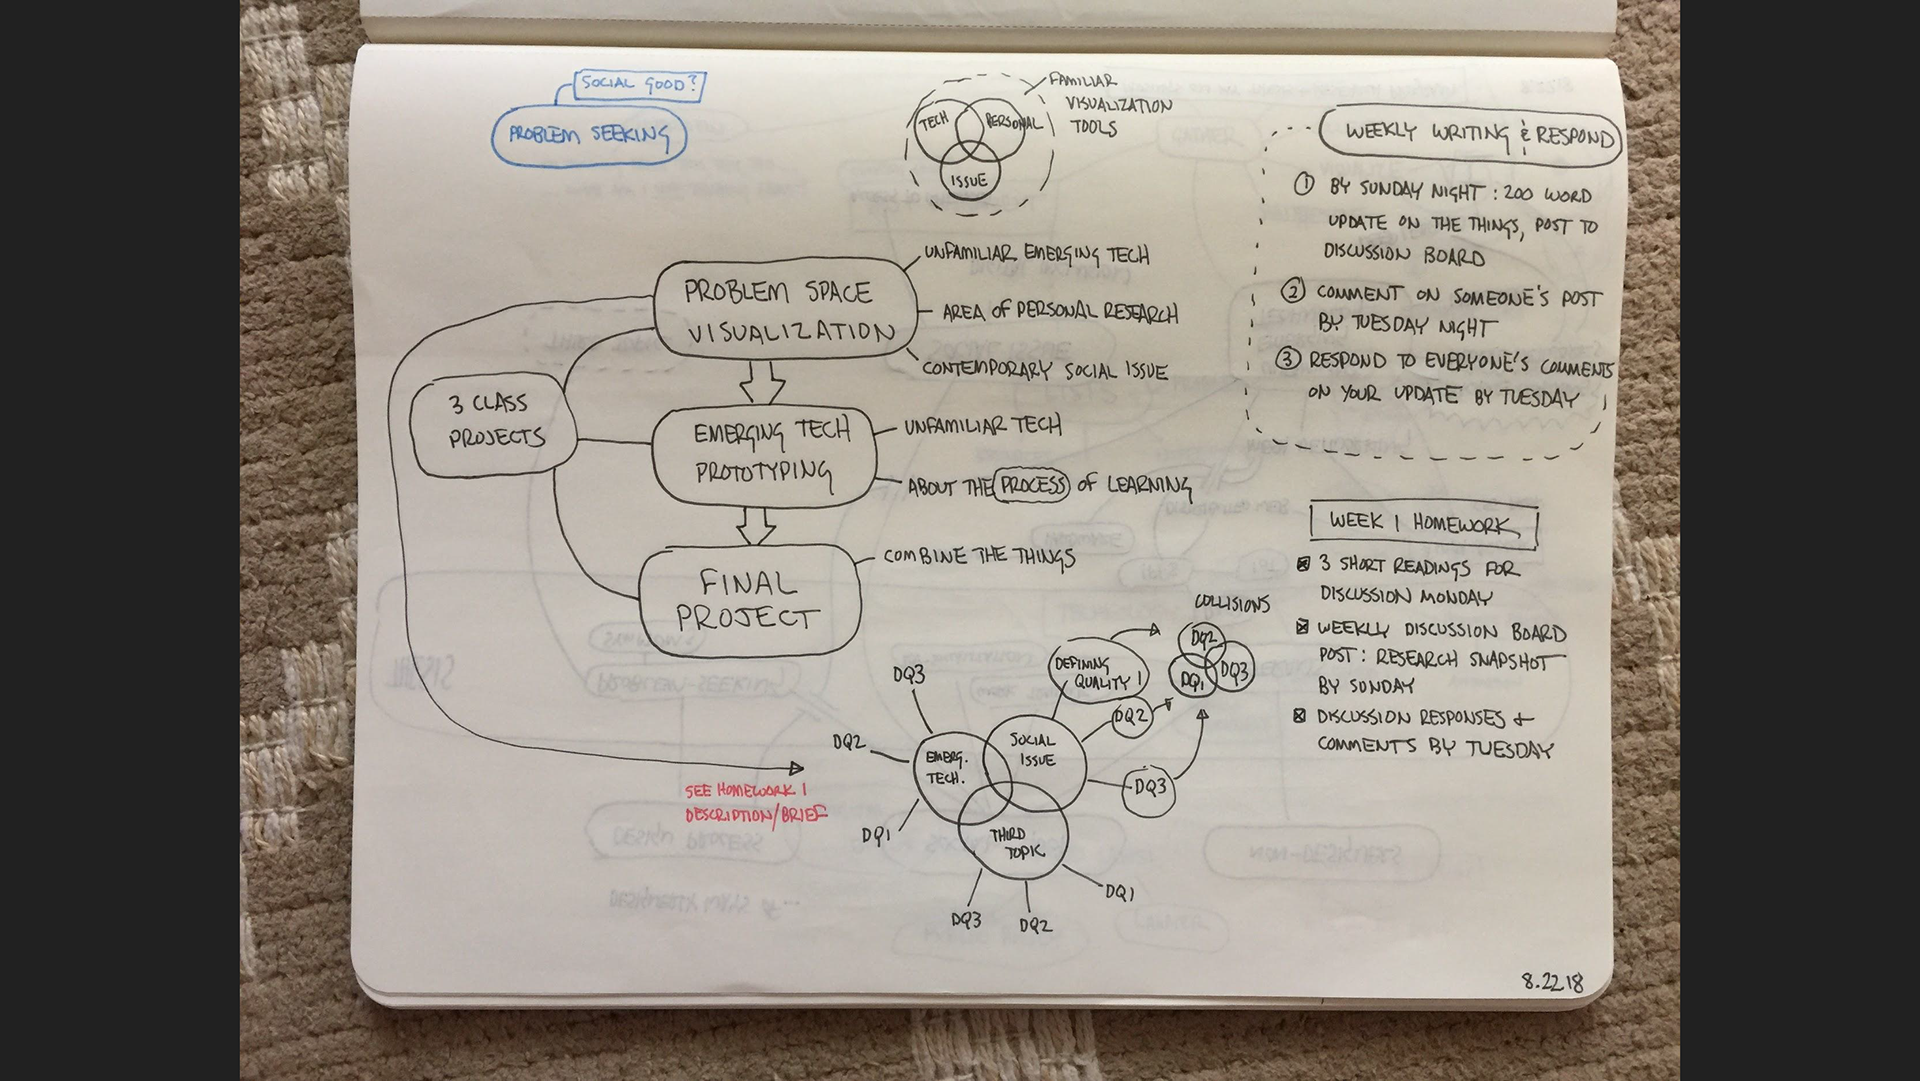 SOCIAL GOOD?
PROBLEM SEEKING
TECH
PERSONAL
ISSUE
FAMILIAR
VISUALIZATION
TOOLS
PROBLEM SPACE
VISUALIZATION
UNFAMILIAR EMERGING TECH
AREA OF PERSONAL RESEARCH
CONTEMPORARY SOCIAL ISSUE
3 CLASS
PROJECTS
EMERGING TECH
PROTOTYPING
UNFAMILIAR TECH
ABOUT THE PROCESS OF LEARNING
FINAL
PROJECT
COMBINE THE THINGS
SEE HOMEWORK 1
DESCRIPTION/BRIEF
COLLISIONS
DQ2
DQ1
DQ3
DEFINING
QUALITY 1
DQ2
DQ3
SOCIAL
ISSUE
EMERG.
TECH.
THIRD
TOPIC
DQ3
DQ2
DQ1
DQ3
DQ2
DQ1
WEEKLY WRITING & RESPOND
① BY SUNDAY NIGHT: 200 WORD
UPDATE ON THE THINGS, POST TO
DISCUSSION BOARD
② COMMENT ON SOMEONE'S POST
BY TUESDAY NIGHT
③ RESPOND TO EVERYONE'S COMMENTS
ON YOUR UPDATE BY TUESDAY
WEEK 1 HOMEWORK
☒ 3 SHORT READINGS FOR
DISCUSSION MONDAY
☒ WEEKLY DISCUSSION BOARD
POST: RESEARCH SNAPSHOT
BY SUNDAY
☒ DISCUSSION RESPONSES +
COMMENTS BY TUESDAY
8.22.18